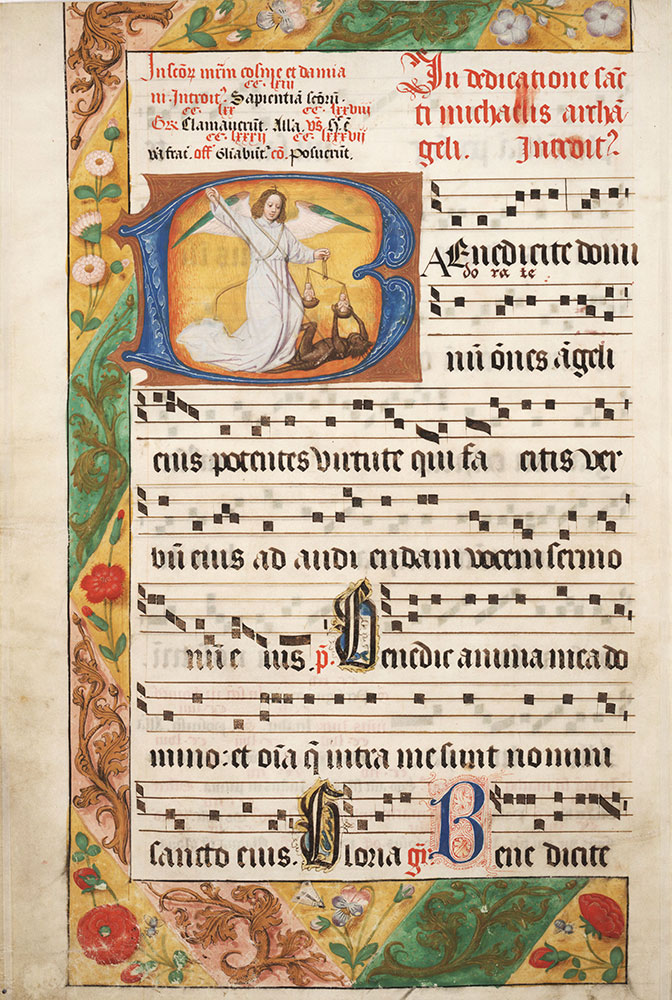 In scōꝝ mr̄m cosme et damia
cc. lxiii
ni. Introit⁹. Sapientiā scōrū.
cc. lx cc. lxxviii
Gr̄. Clamauerūt. Alla. v̄s. h̄ ē
cc. lxxxii cc. lxxxvii
va frat̄. off̄ Gl̄abūt᷒. cō. Posuerūt.
In dedicatione sāc
ti michaelis archā
geli. Introit⁹
BEnedicite domi
Adorate.
nū ōnes āgeli
eius potentes virtute qui fa citis ver
bū eius ad audi endam vocem sermo
nū e ius. p̄. Benedic anima mea do
mino: et oīa q̄ intra me sunt nomini
sancto eius. Gloria gr̄. Bene dicite